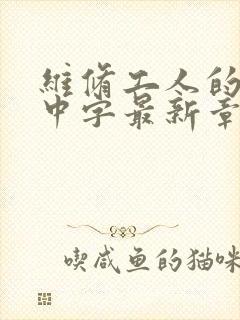 維脩工人的
中字最新章
喫咸鱼的猫咪